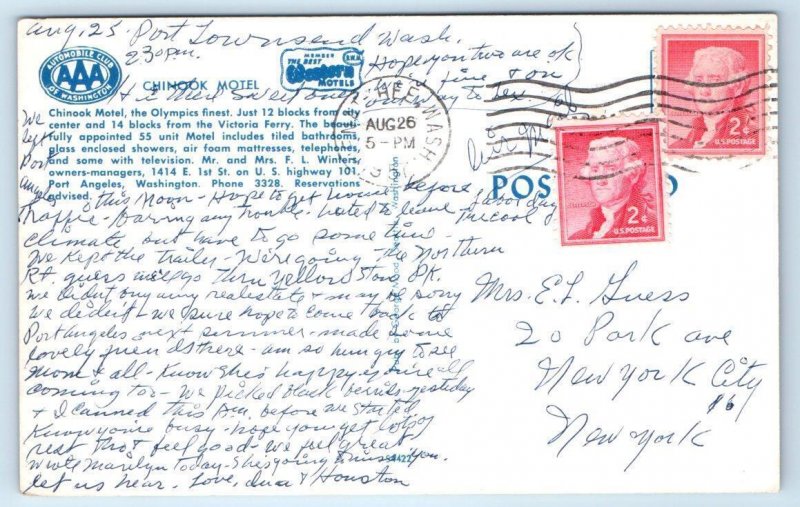 Aug, 25 Port Townsend Wash.
2:30 p.m. Hope you two are ok
AUTOMOBILE CLUB
AAA
OF WASHINGTON
CHINOOK MOTEL
MEMBER
THE BEST
Western
MOTELS
Hi there sweet our way to Tex.
fine & on
Chinook Motel, the Olympics finest. Just 12 blocks from city
center and 14 blocks from the Victoria Ferry. The beauti-
fully appointed 55 unit Motel includes tiled bathrooms,
glass enclosed showers, air foam mattresses, telephones,
and some with television. Mr. and Mrs. F. L. Winters,
owners-managers, 1414 E. 1st St. on U. S. highway 101,
Port Angeles, Washington. Phone 3328. Reservations
advised.
We
left
Port
Angeles
this Noon - Hope to get home before Labor day
traffic - barring any trouble - hated to leave the cool
climate but have to go some time
We kept the trailer - We're going the Northern
Rt. guess will go thru Yellow Stone Pk.
We didnt buy any real estate & may be sorry
we didnt - we sure hope to come back to
Port Angeles next summer - made some
lovely friends there - am so hungry to see
Mom & all - Know she's happy you're all
coming too - We picked black berries yesterday
& I canned this a.m. before we started
Know you're busy - hope you get lots of
rest tho & feel good - we feel great
Wrote Marilyn today - She's going to miss you.
let us hear. Love, & Houston
WASH.
AUG 26
5 - PM
POS
2¢
U.S. POSTAGE
2¢
U.S. POSTAGE
Mrs. E. L. Guess
20 Park ave
New York City
16
New York